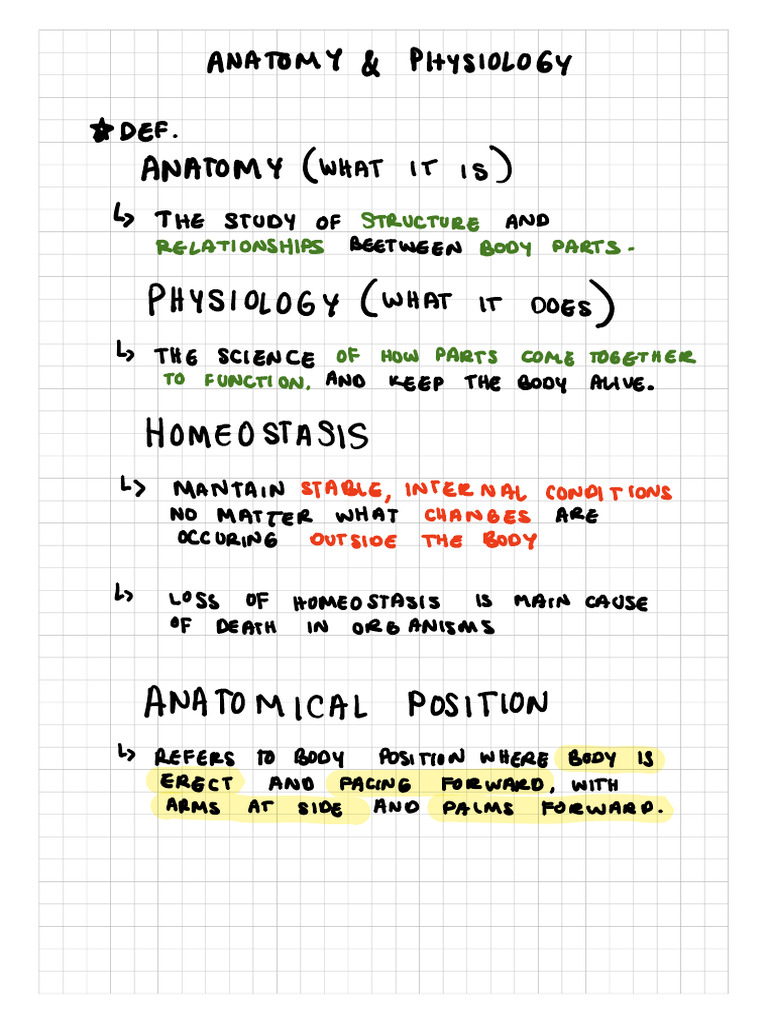 ANATOMY & PHYSIOLOGY
★DEF.
ANATOMY (WHAT IT IS)
↳ THE STUDY OF STRUCTURE AND
RELATIONSHIPS BEETWEEN BODY PARTS.
PHYSIOLOGY (WHAT IT DOES)
↳ THE SCIENCE OF HOW PARTS COME TOGETHER
TO FUNCTION. AND KEEP THE BODY ALIVE.
HOMEOSTASIS
↳ MANTAIN STABLE, INTERNAL CONDITIONS
NO MATTER WHAT CHANGES ARE
OCCURING OUTSIDE THE BODY
↳ LOSS OF HOMEOSTASIS IS MAIN CAUSE
OF DEATH IN ORGANISMS
ANATOMICAL POSITION
↳ REFERS TO BODY POSITION WHERE BODY IS
ERECT AND PACING FORWARD, WITH
ARMS AT SIDE AND PALMS FORWARD.